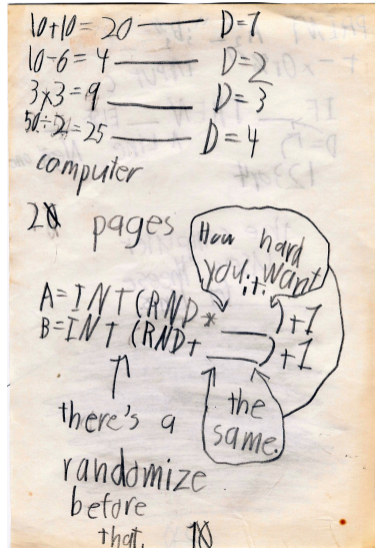 10+10=20 ——— D=1
10-6=4 ——— D=2
3×3=9 ——— D=3
50÷2=25 ——— D=4
computer
20 pages
How hard
you want
it.
A=INT(RND* ___)+1
B=INT (RND+ ___)+1
the
same.
there's a
randomize
before
that. 10